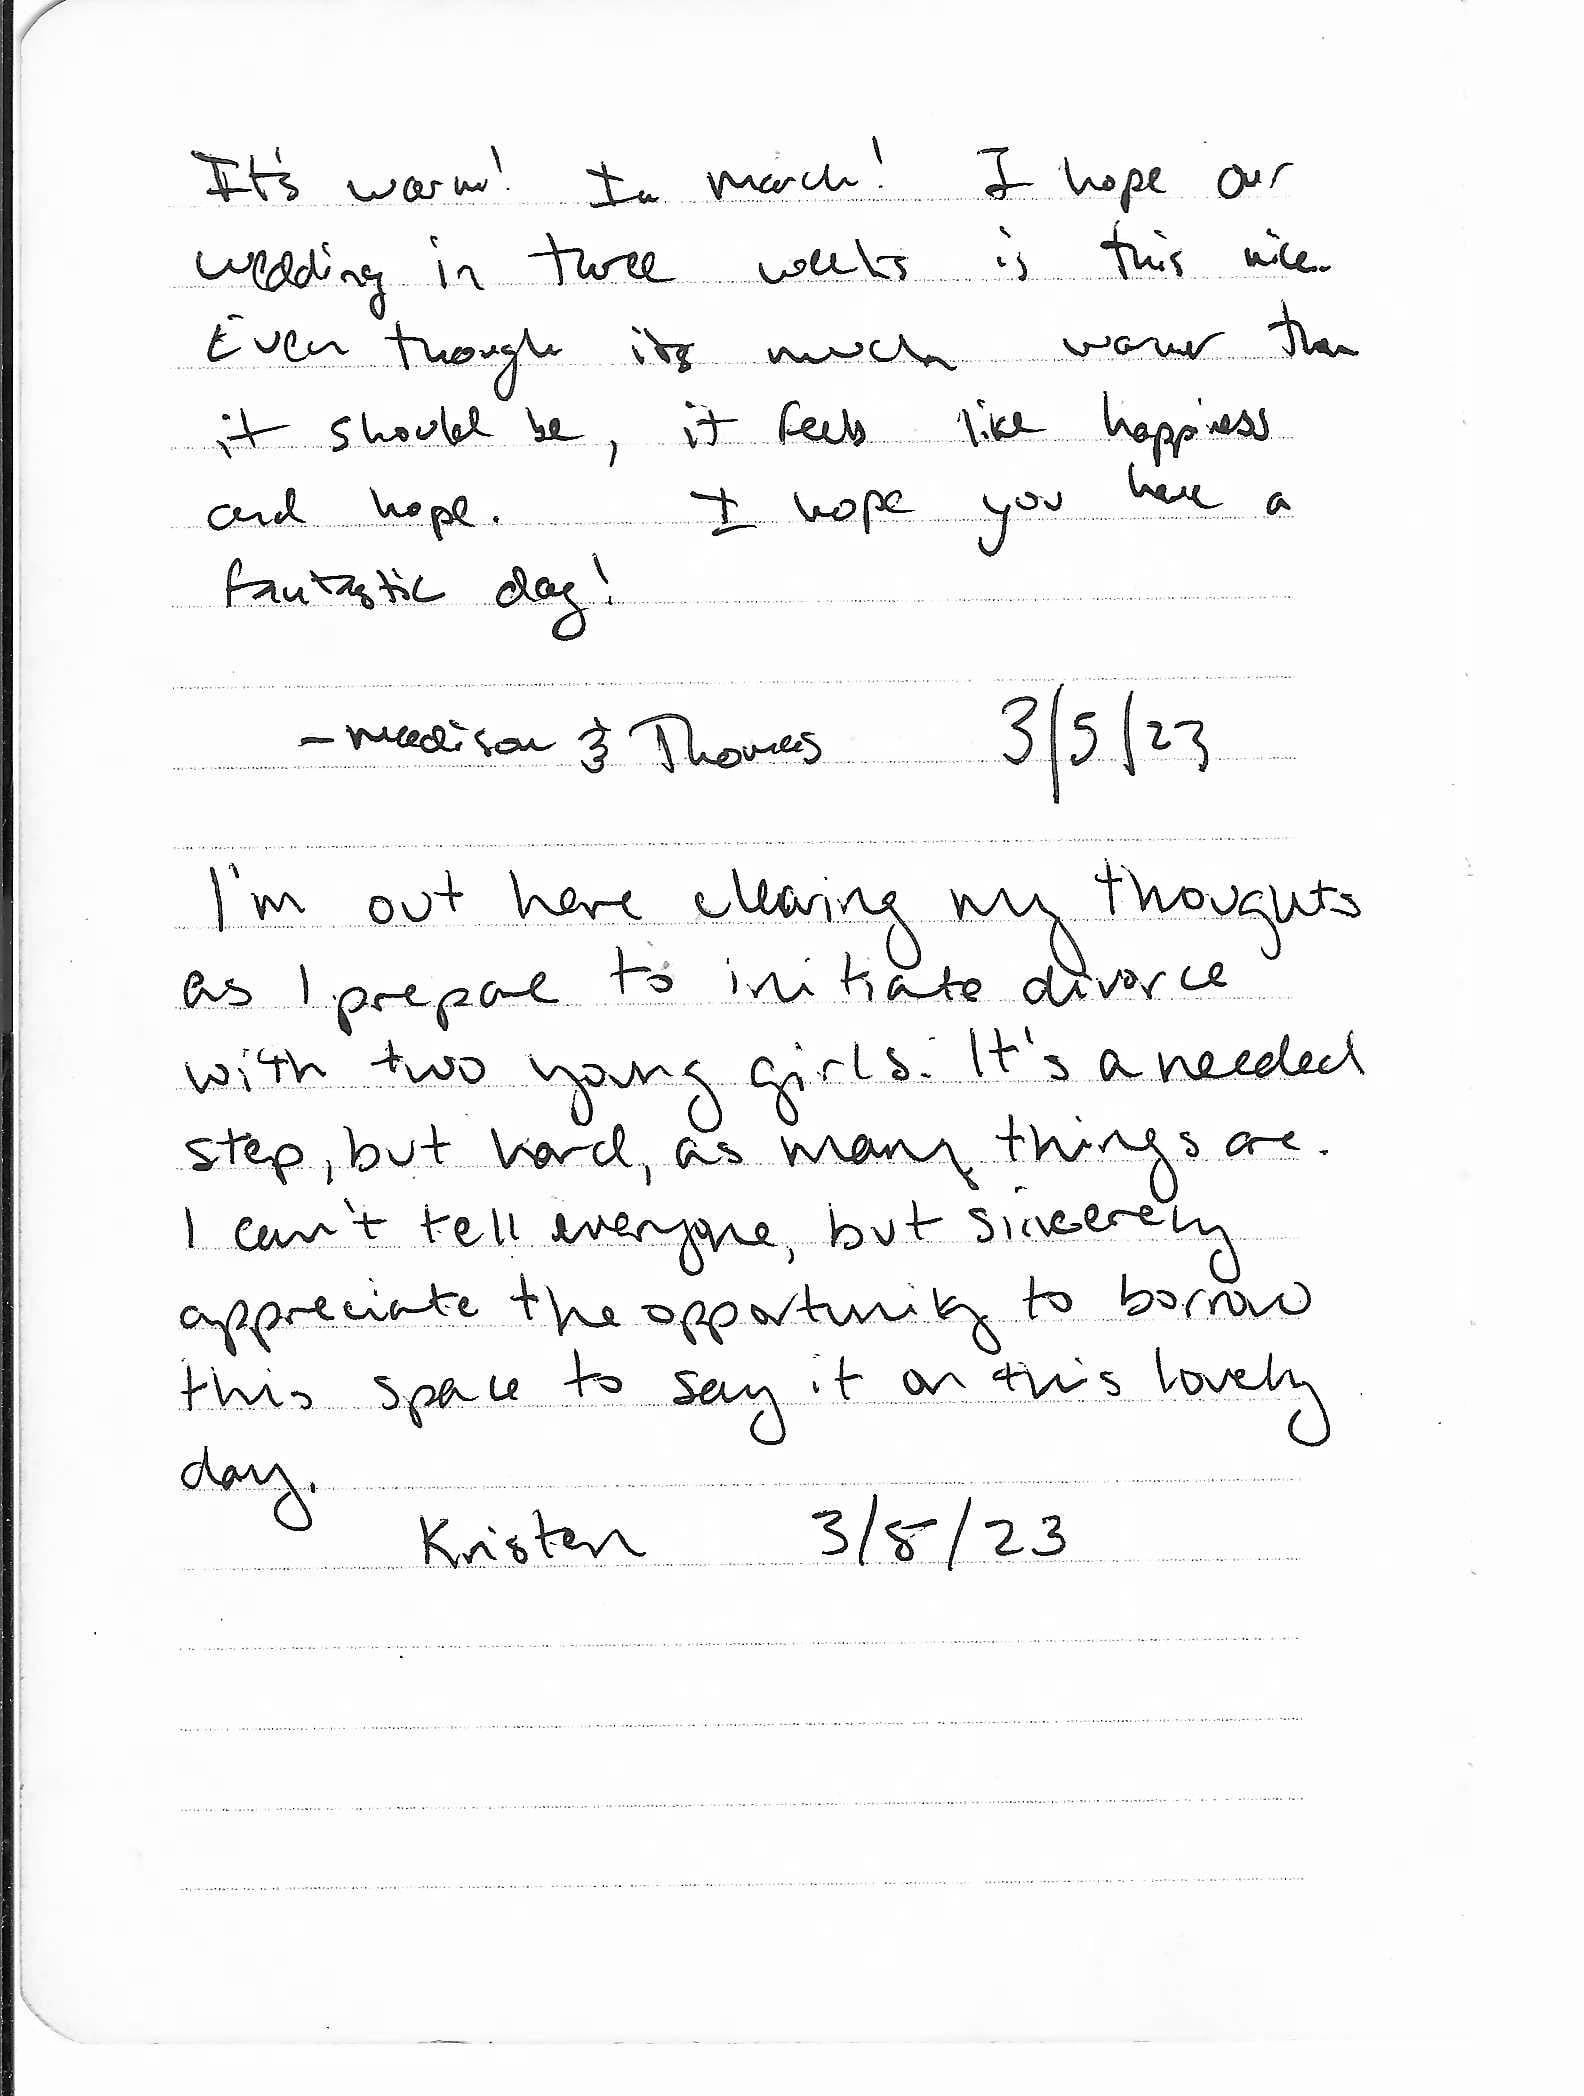 It's warm! In March! I hope our
wedding in three weeks is this nice.
Even though its much warmer than
it should be, it feels like happiness
and hope. I hope you have a
fantastic day!
- Madison & Thomas 3/5/23
I'm out here clearing my thoughts
as I prepare to initiate divorce
with two young girls. It's a needed
step, but hard, as many things are.
I can't tell everyone, but sincerely
appreciate the opportunity to borrow
this space to say it on this lovely
day.
Kristen 3/5/23